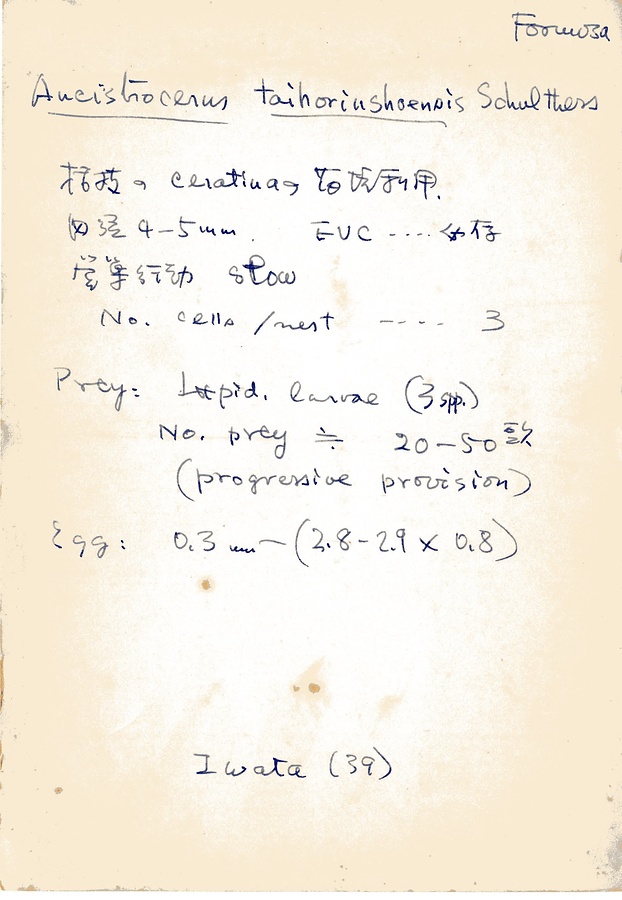 Formosa
Ancistrocerus taihorinshoensis Schulthers
枯枝の ceratinaの旧坑利用.
内径 4-5mm. EVC ....
営巣行動 slow
No. cells /nest ---- 3
Prey: Lepid. larvae (3 spp.)
No. prey ≒ 20-50頭
(progressive provision)
Egg: 0.3 mm (2.8-2.9 × 0.8)
Iwata (39)